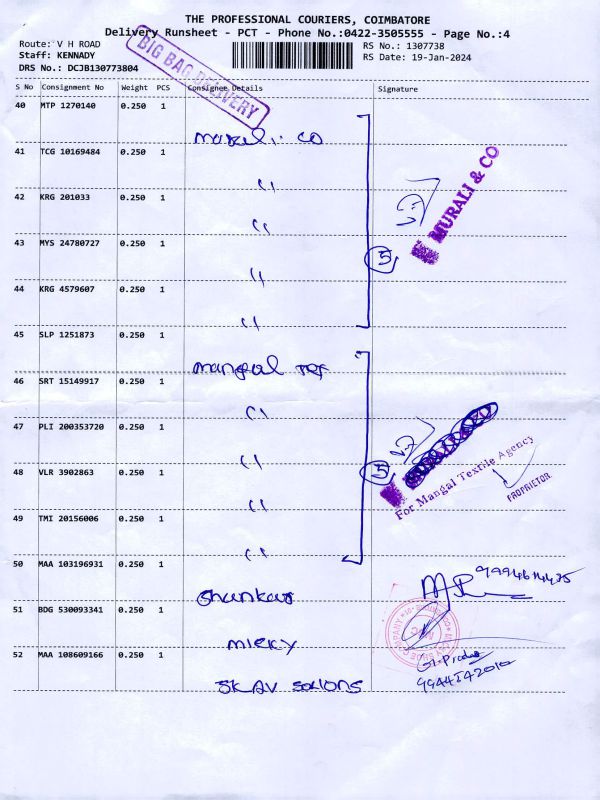 THE PROFESSIONAL COURIERS, COIMBATORE
Delivery Runsheet - PCT - Phone No.:0422-3505555 - Page No.:4
Route: V H ROAD
RS No.: 1307738
Staff: KENNADY
RS Date: 19-Jan-2024
DRS No.: DCJB130773804
BIG BAG DELIVERY
S No Consignment No Weight PCS Consignee Details Signature
40 MTP 1270140 0.250 1
murali. co
41 TCG 10169484 0.250 1
״
42 KRG 201033 0.250 1
״
MURALI & CO
43 MYS 24780727 0.250 1
5
״
44 KRG 4579607 0.250 1
״
45 SLP 1251873 0.250 1
mangal Tex
46 SRT 15149917 0.250 1
״
47 PLI 200353720 0.250 1
״
48 VLR 3902863 0.250 1
5
For Mangal Textile Agency
״
PROPRIETOR
49 TMI 20156006 0.250 1
״
50 MAA 103196931 0.250 1
Shunkar
51 BDG 530093341 0.250 1
micky
52 MAA 108609166 0.250 1
9944542010
SKAV